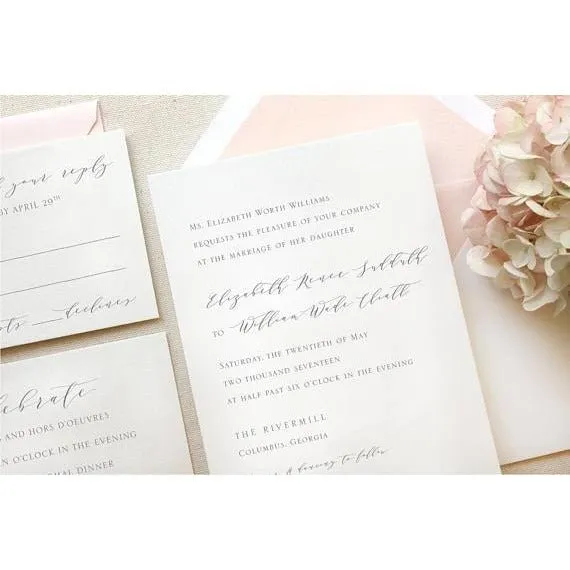 your reply
BY APRIL 29TH
declines
AND HORS D'OEUVRES
O'CLOCK IN THE EVENING
DINNER
Ms. Elizabeth Worth Williams
requests the pleasure of your company
at the marriage of her daughter
Elizabeth Renee Sudduth
to William Wade Cheatt
Saturday, the twentieth of May
two thousand seventeen
at half past six o'clock in the evening
THE RIVERMILL
Columbus, Georgia
& dancing to follow